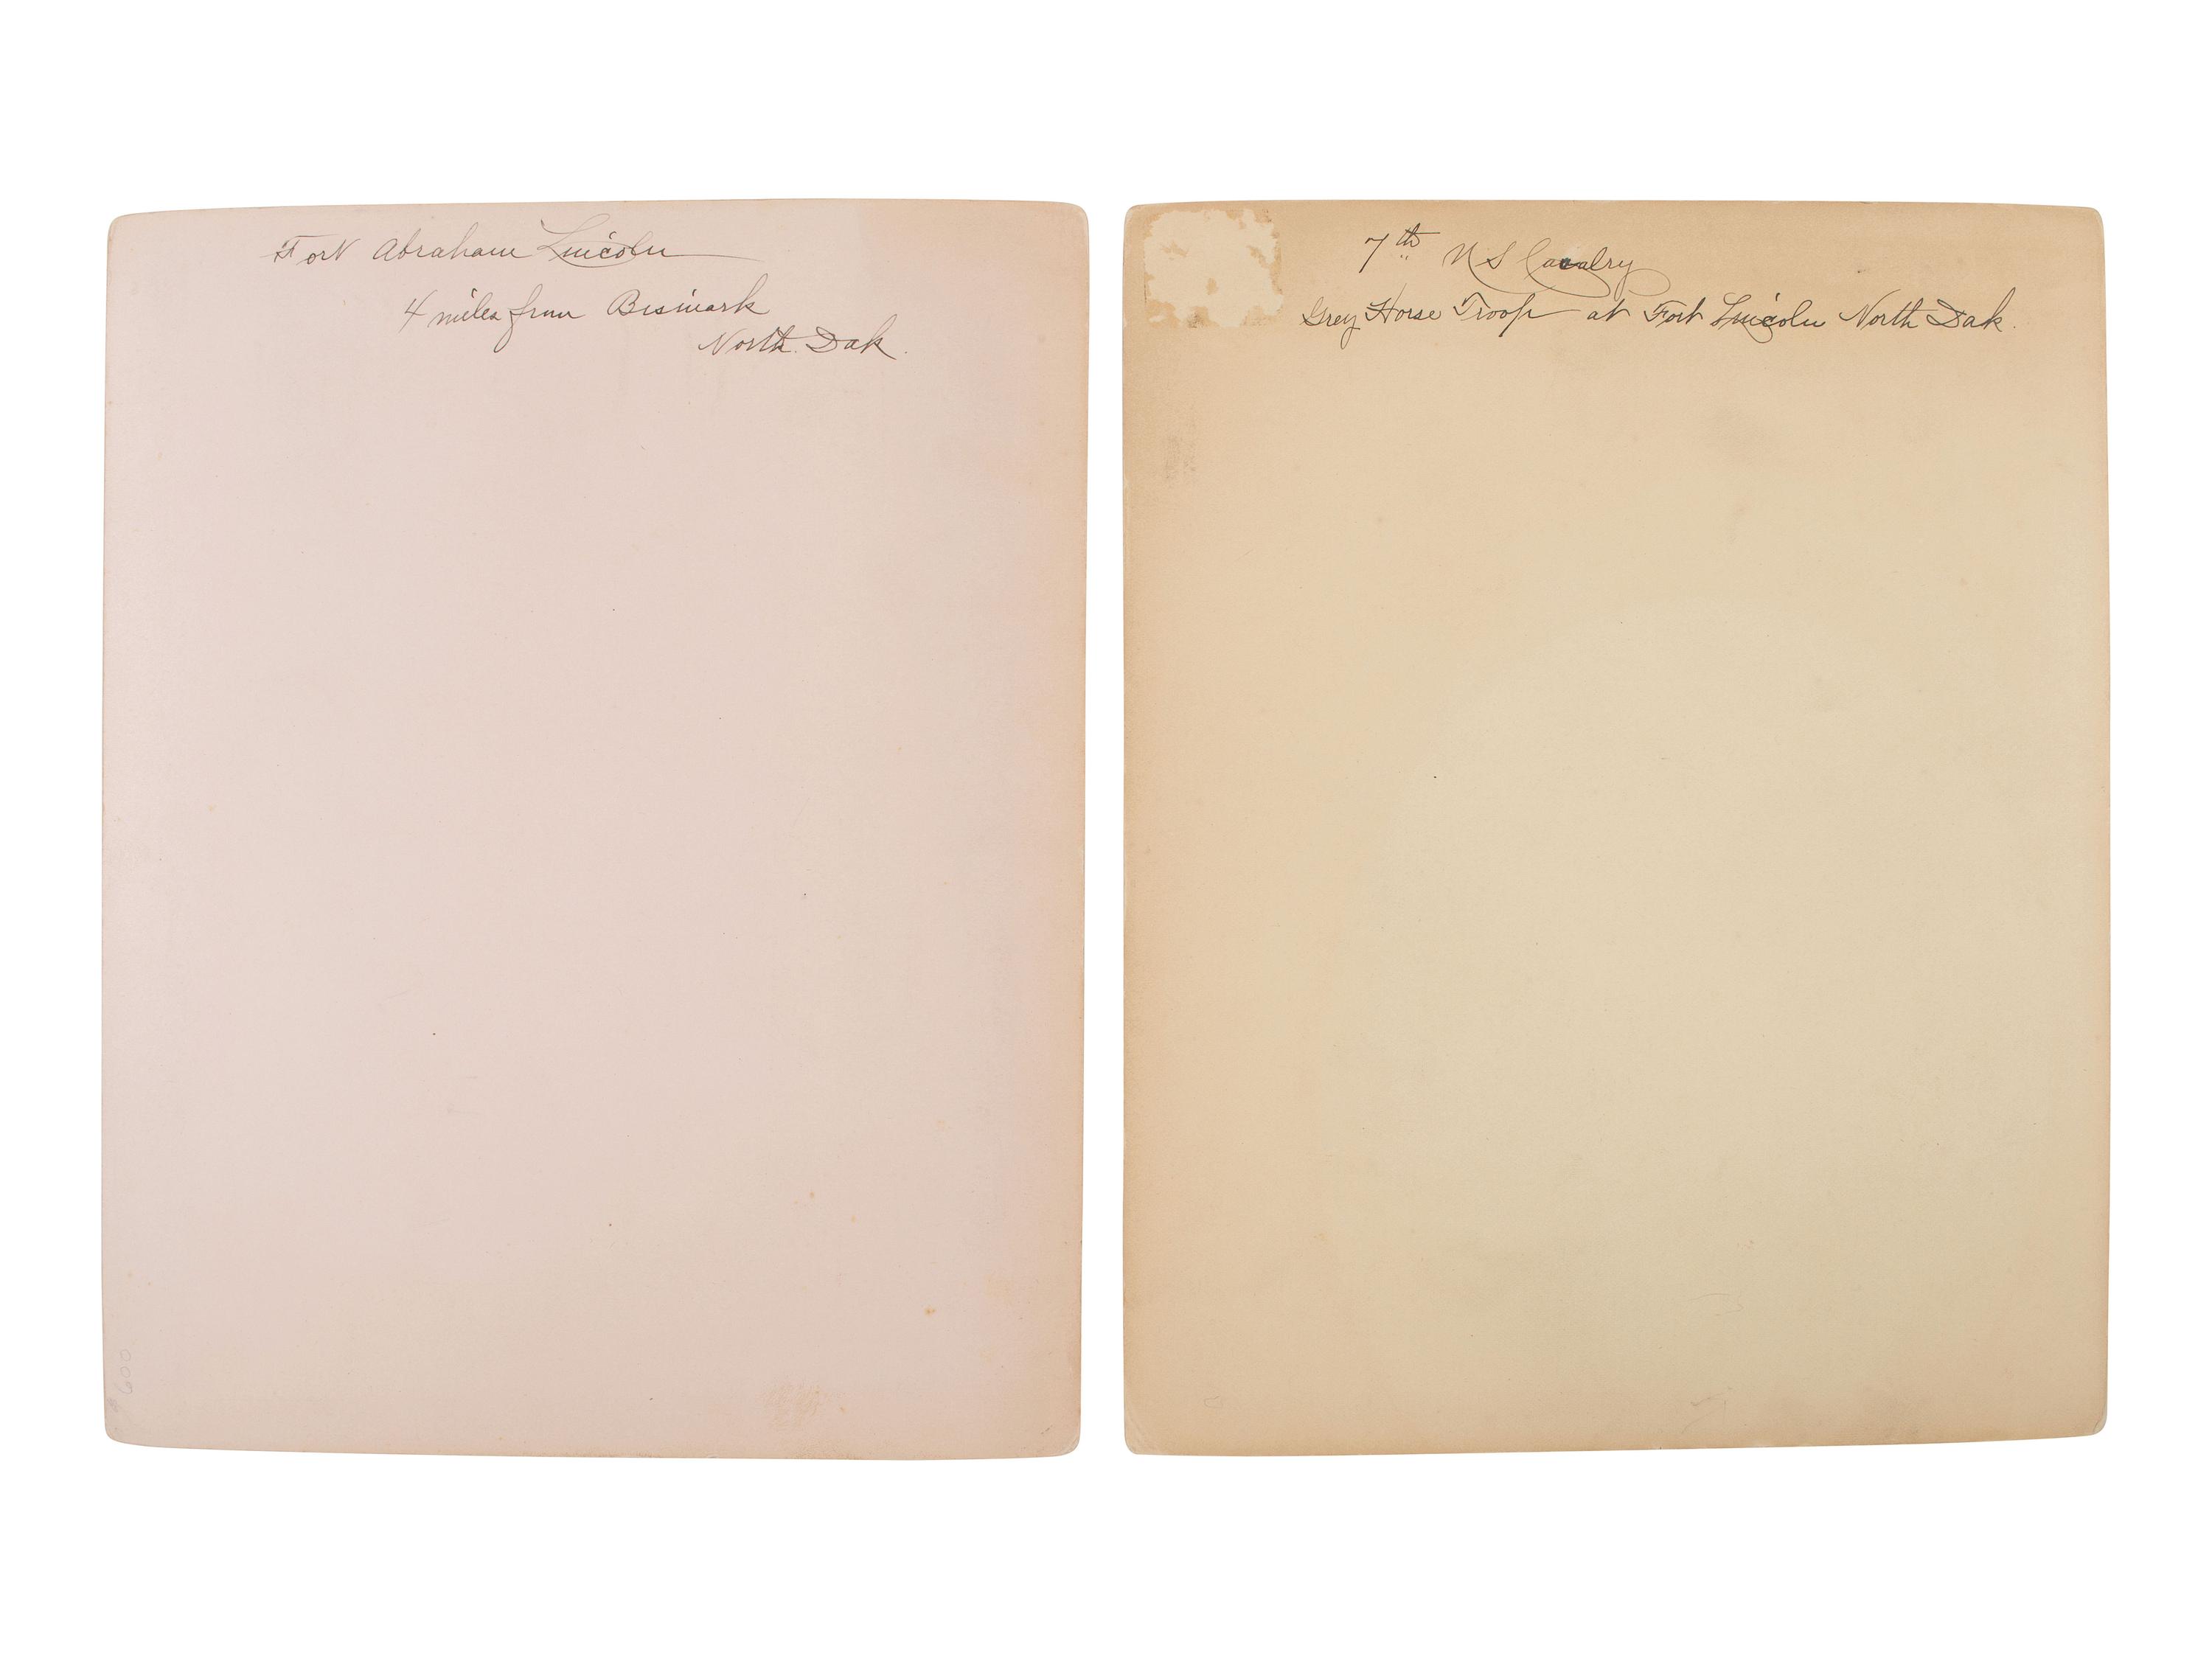 Fort Abraham Lincoln
4 miles from Bismark
North Dak.
600
7th U S Cavalry
Grey Horse Troop at Fort Lincoln North Dak.